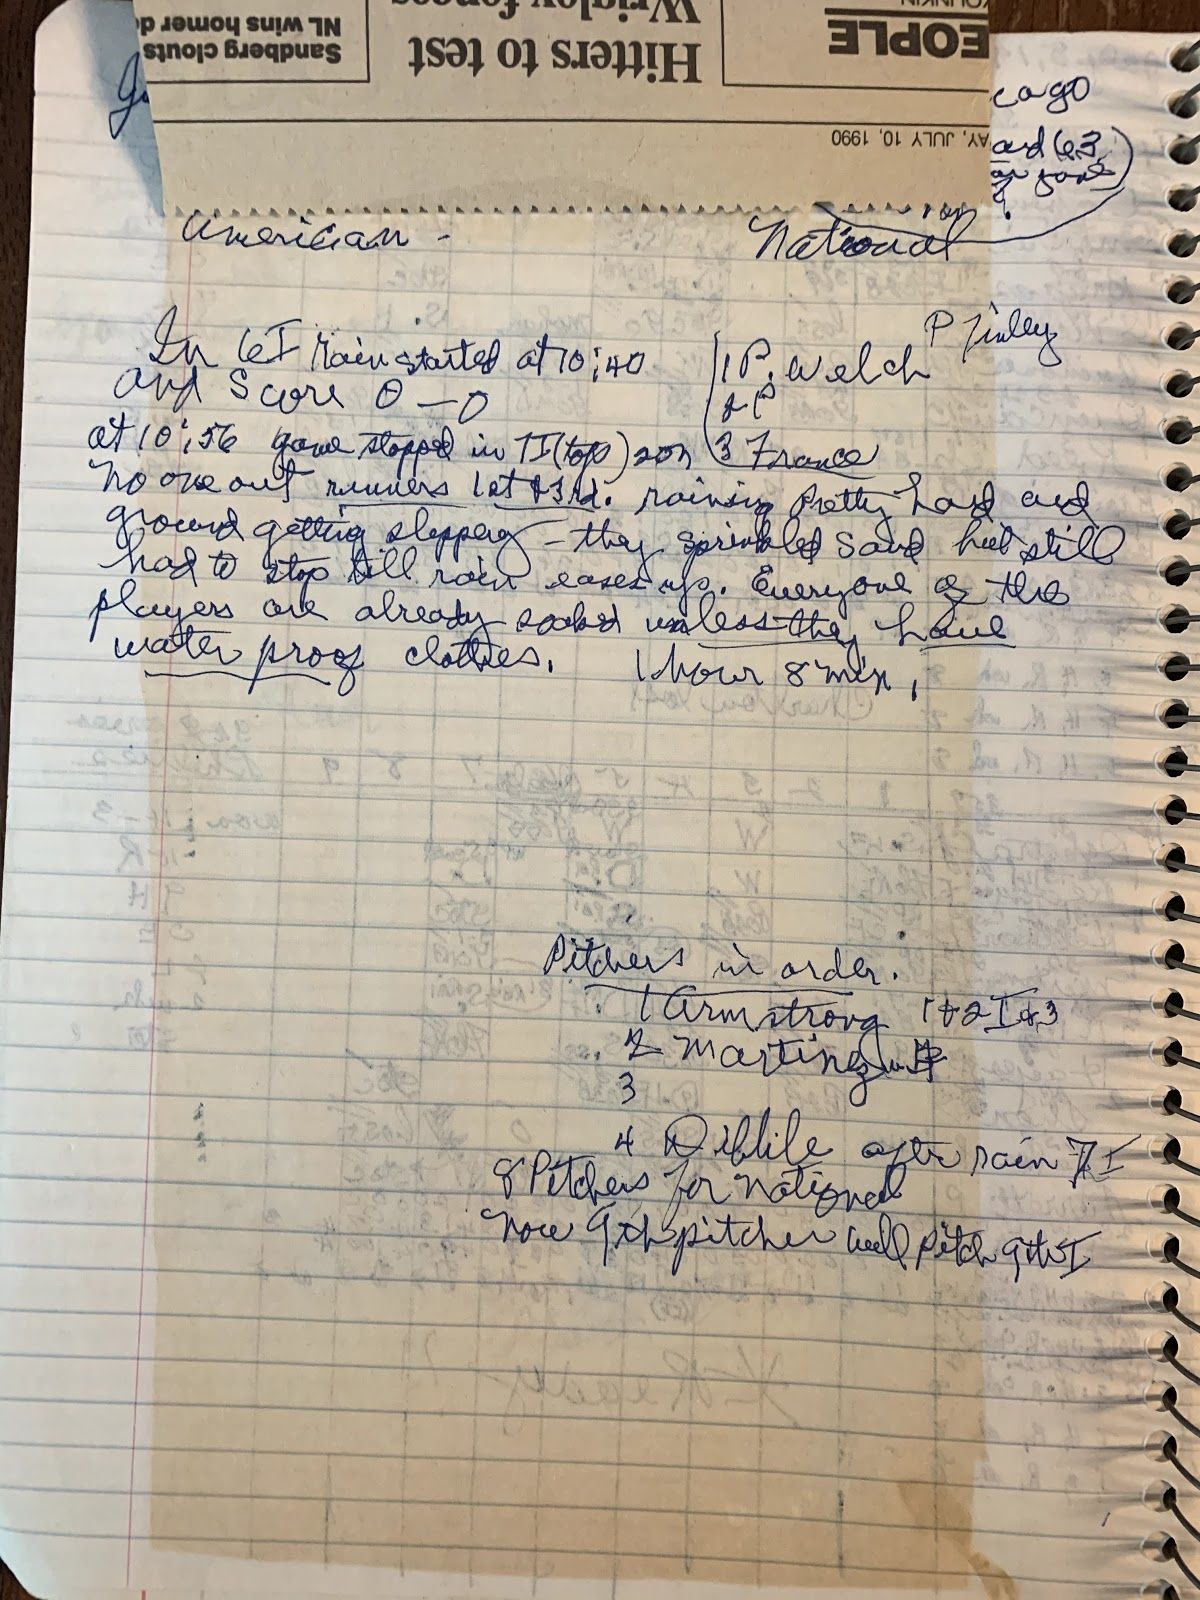 Sandberg clouts
NL wins homer de
Hitters to test
Wrigley fences
EOPLE
OUNKIN
AY, JULY 10, 1990
cago
American -
National
In 6I rain started at 10:40
and Score 0-0
1 P. Welch P Finley
2 P
3 France
at 10:56 game stopped in 7I (top)
no one out runners 1st & 3rd. raining Pretty hard and
ground getting slippery - they sprinkled sand but still
had to stop till rain eases up. Everyone of the
players are already soaked unless they have
water proof clothes. 1 hour 8 min.
Pitchers in order.
1 Armstrong 1 & 2 I & 3
2 Martinez
3
4 Dibble after rain 7I
8 Pitchers for National
now 9th pitcher will pitch 9th I